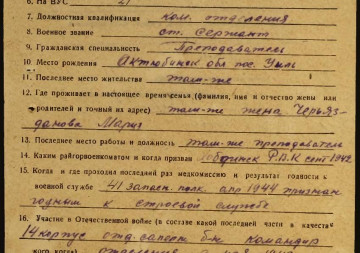 6. На ВУС 21
7. Должностная квалификация ком. отделения
8. Военное звание ст. сержант
9. Гражданская специальность Преподаватель
10. Место рождения Актюбинск обл пос. Уил
11. Последнее место жительства там-же
12. Где проживает в настоящее время семья (фамилия, имя и отчество жены или
родителей и точный их адрес) там-же жена
Мария
13. Последнее место работы и должность там-же преподаватель
14. Каким райгорвоенкоматом и когда призван Р.В.К сент 1942
15. Когда и где проходил последний раз медкомиссию и результат годности к
военной службе 41 Запасн. полк. апр 1944 признан
годным к строевой службе
16. Участие в Отечественной войне (в составе какой последней части в качестве
14 корпус отд. саперн б-н командир
кого, когда) отделения